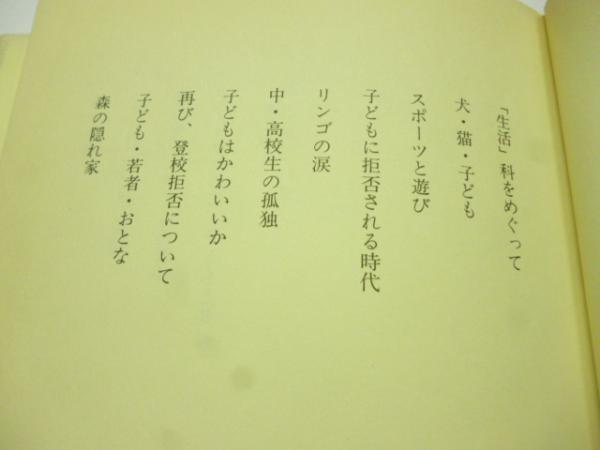 「生活」科をめぐって
犬・猫・子ども
スポーツと遊び
子どもに拒否される時代
リンゴの涙
中・高校生の孤独
子どもはかわいいか
再び、登校拒否について
子ども・若者・おとな
森の隠れ家